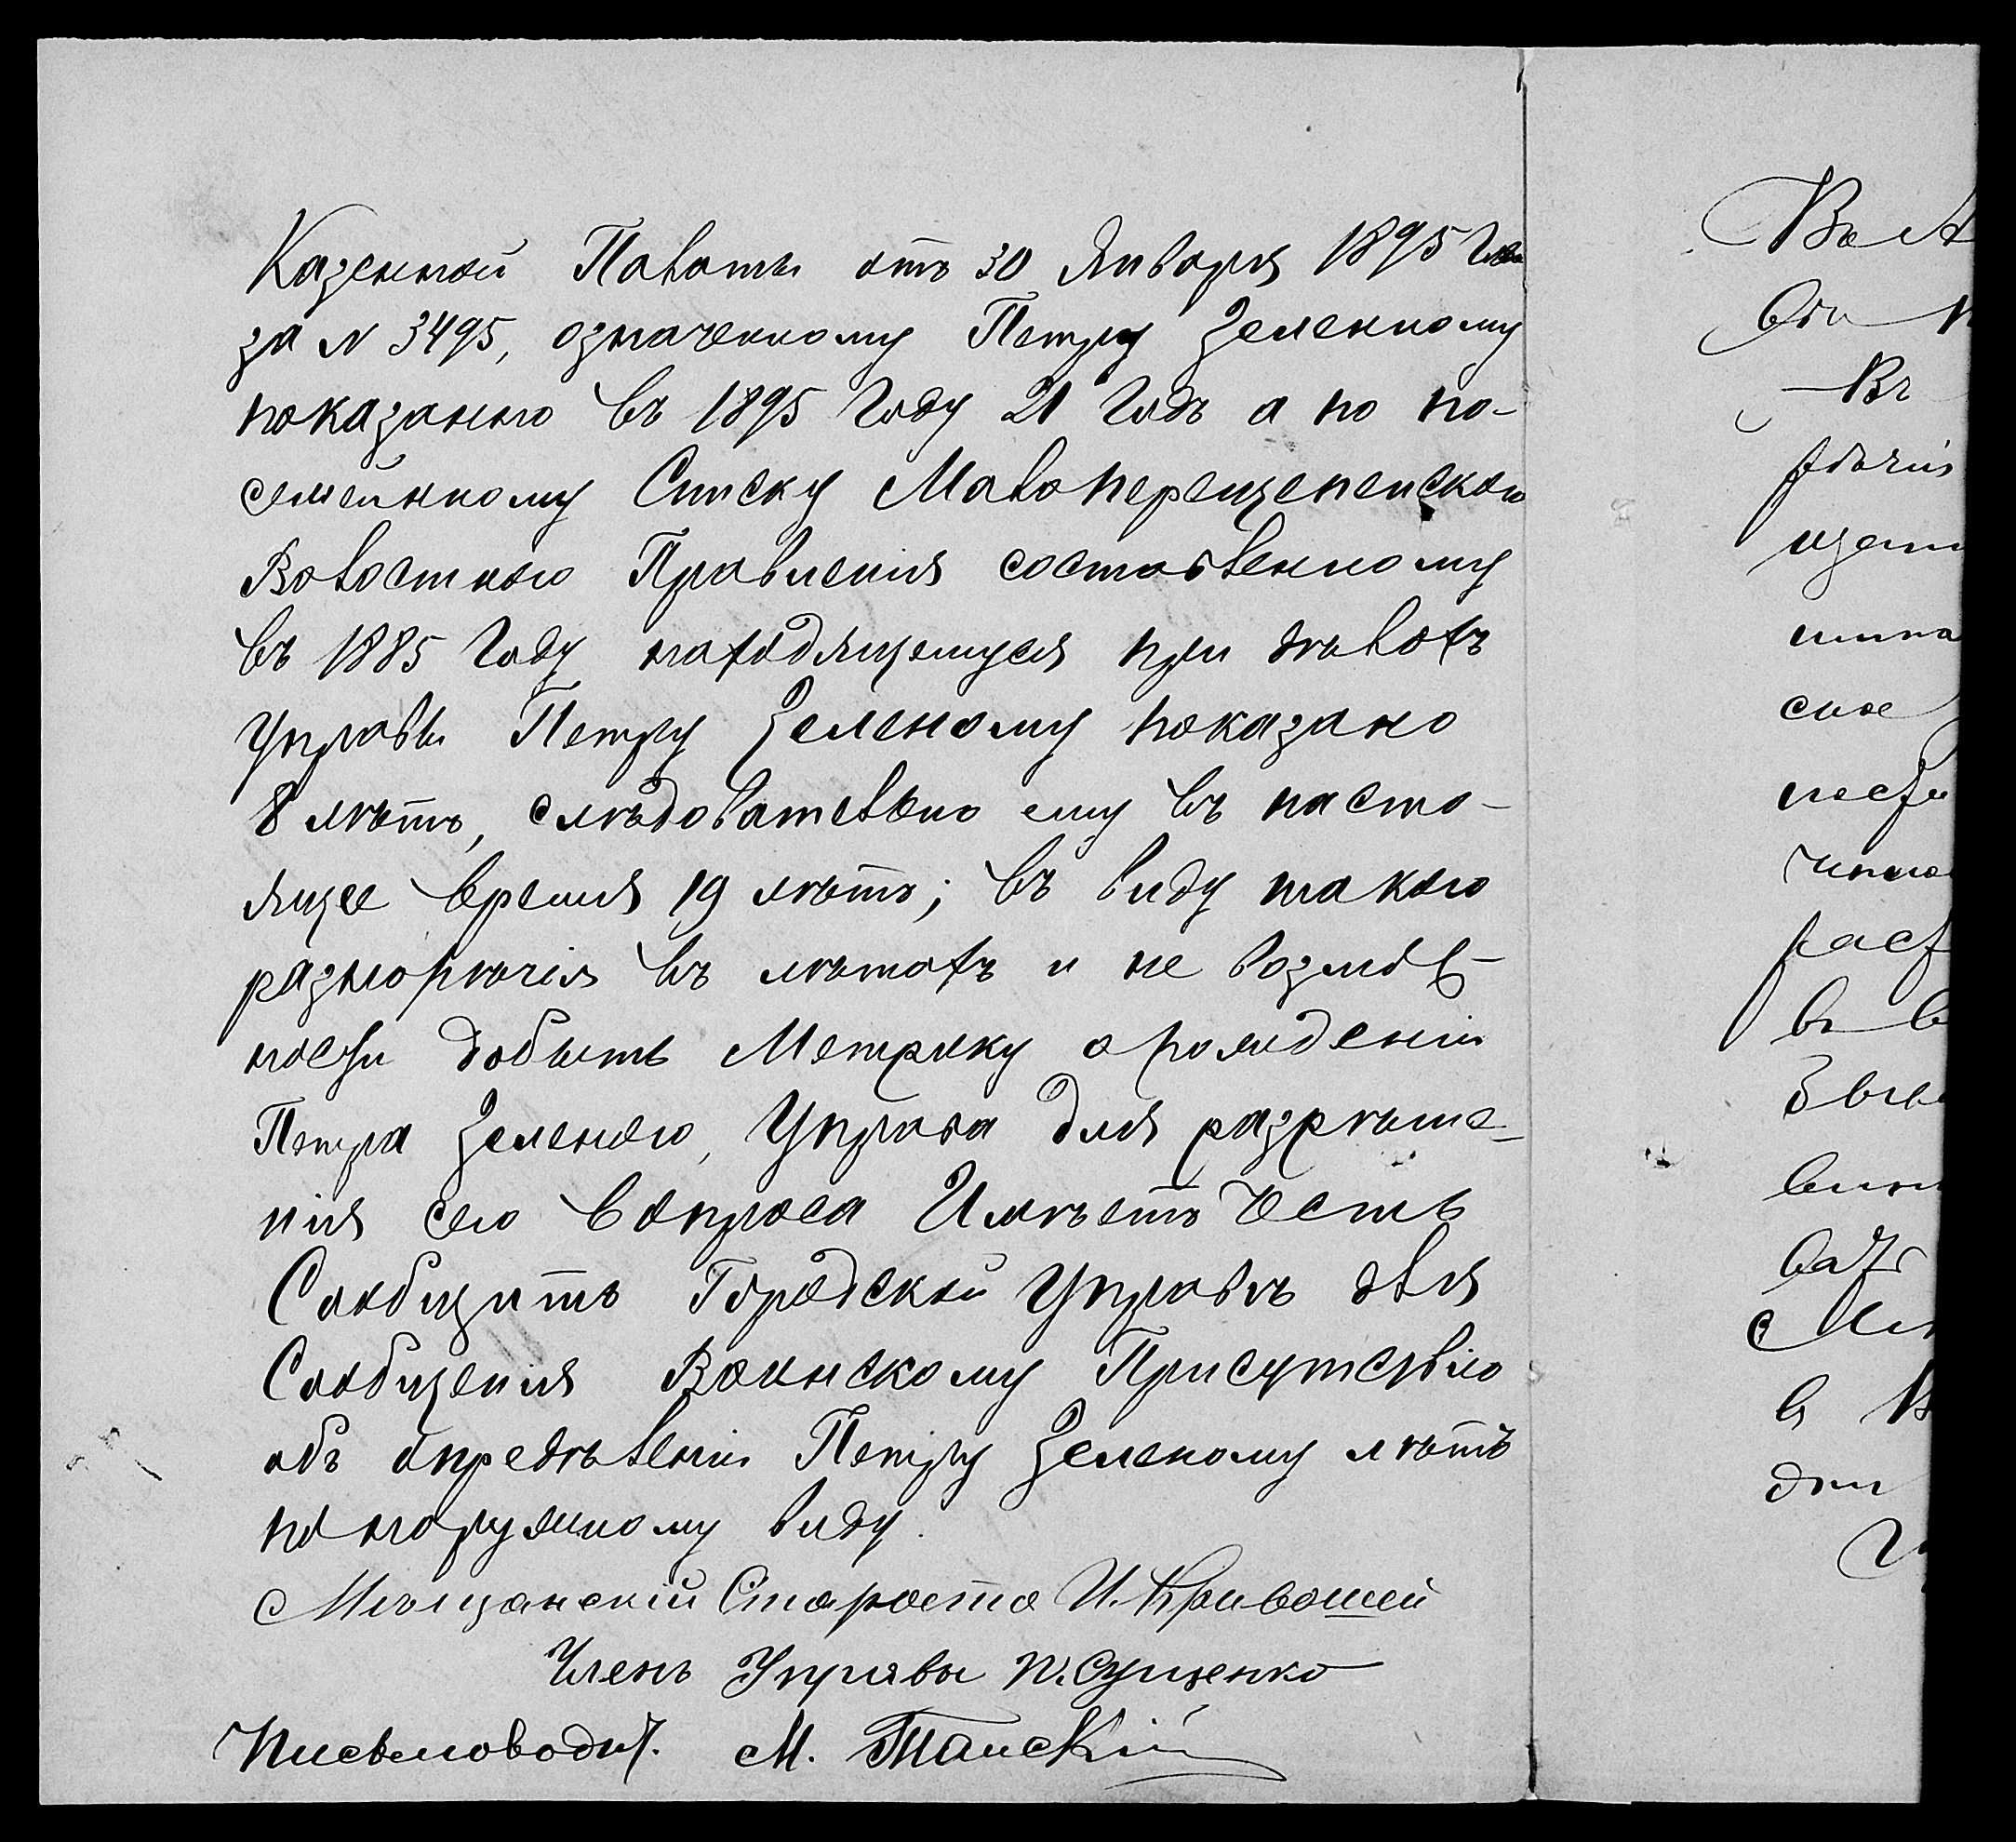 Казенной Палаты отъ 30 Января 1895 года
за № 3495, означенному Петру Зеленному
показанно въ 1895 году 21 годъ а по по-
семейнному Списку Малоперещепенского
Волостного Правленія составленному
въ 1885 году находящемуся при дѣлахъ
Управы Петру Зеленому показано
8 лѣтъ, слѣдовательно ему въ насто-
ящее время 19 лѣтъ; въ виду такого
разнорѣчія въ лѣтахъ и не возмож-
ности добыть Метрику о рожденіи
Петра Зеленого, Управа для разрѣше-
нія сего вопроса Имѣетъ честь
Сообщить Городской Управѣ для
Сообщенія Воинскому Присутствію
объ опредѣленіи Петру Зеленому лѣтъ
по наружному виду.
Мѣщанскій Староста И. Кривошей
Членъ Управы П. Сущенко
Письмоводит. М. Танскій
Въ
въ